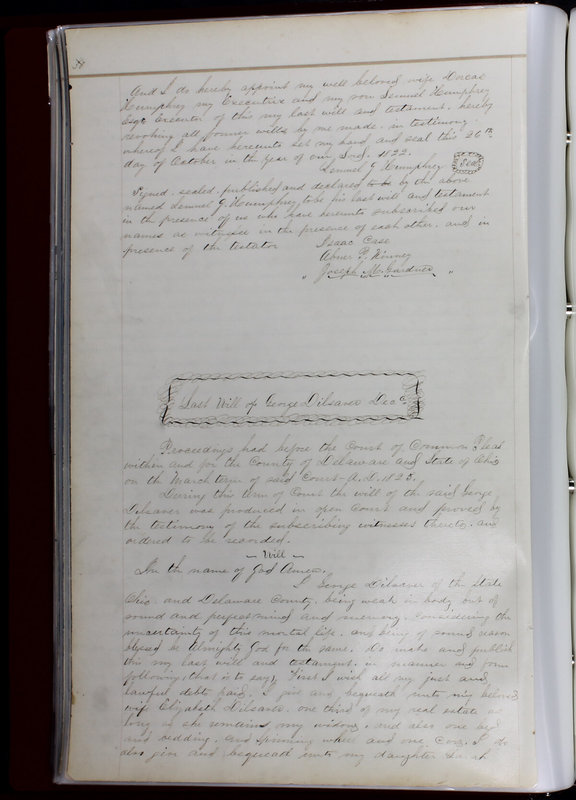 34
And I do hereby appoint my well beloved wife Dorcas
Humphrey my Executrix and my son Lemuel Humphrey
Esqr Executor of this my last will and testament. hereby
revoking all former wills by me made. in testimony
whereof I have hereunto set my hand and seal this 26th
day of October in the year of our Lord. 1822.
Lemuel G Humphrey Seal
Signed. sealed. published and declared to be by the above
named Lemuel G. Humphrey to be his last will and testament
in the presence of us who have hereunto subscribed our
names as witnesses in the presence of each other. and in
presence of the testator Isaac Case
Abner P. Kinney
" Joseph M. Gardner "
Last Will of George Dilsaver Decd
Proceedings had before the Court of Common Pleas
within and for the County of Delaware and State of Ohio
on the March term of said Court A.D. 1823.
During this term of Court the will of the said George
Dilsaver was produced in open Court and proved by
the testimony of the subscribing witnesses thereto. and
ordered to be recorded.
~ Will ~
In the name of God Amen.
I George Dilsaver of the State
Ohio. and Delaware County. being weak in body, but of
sound and perfect mind and memory. Considering the
uncertainty of this mortal life. and being of sound reason
blessed be Almighty God for the same. Do make and publish
this my last will and testament. in manner and form
following, that is to say, First I wish all my just and
lawful debts paid. I give and bequeath unto my beloved
wife Elizabeth Dilsaver. one third of my real estate as
long as she remains my widow. and also one bed
and bedding. and spinning wheel and one Cow. I do
also give and bequeath unto my daughter Sarah